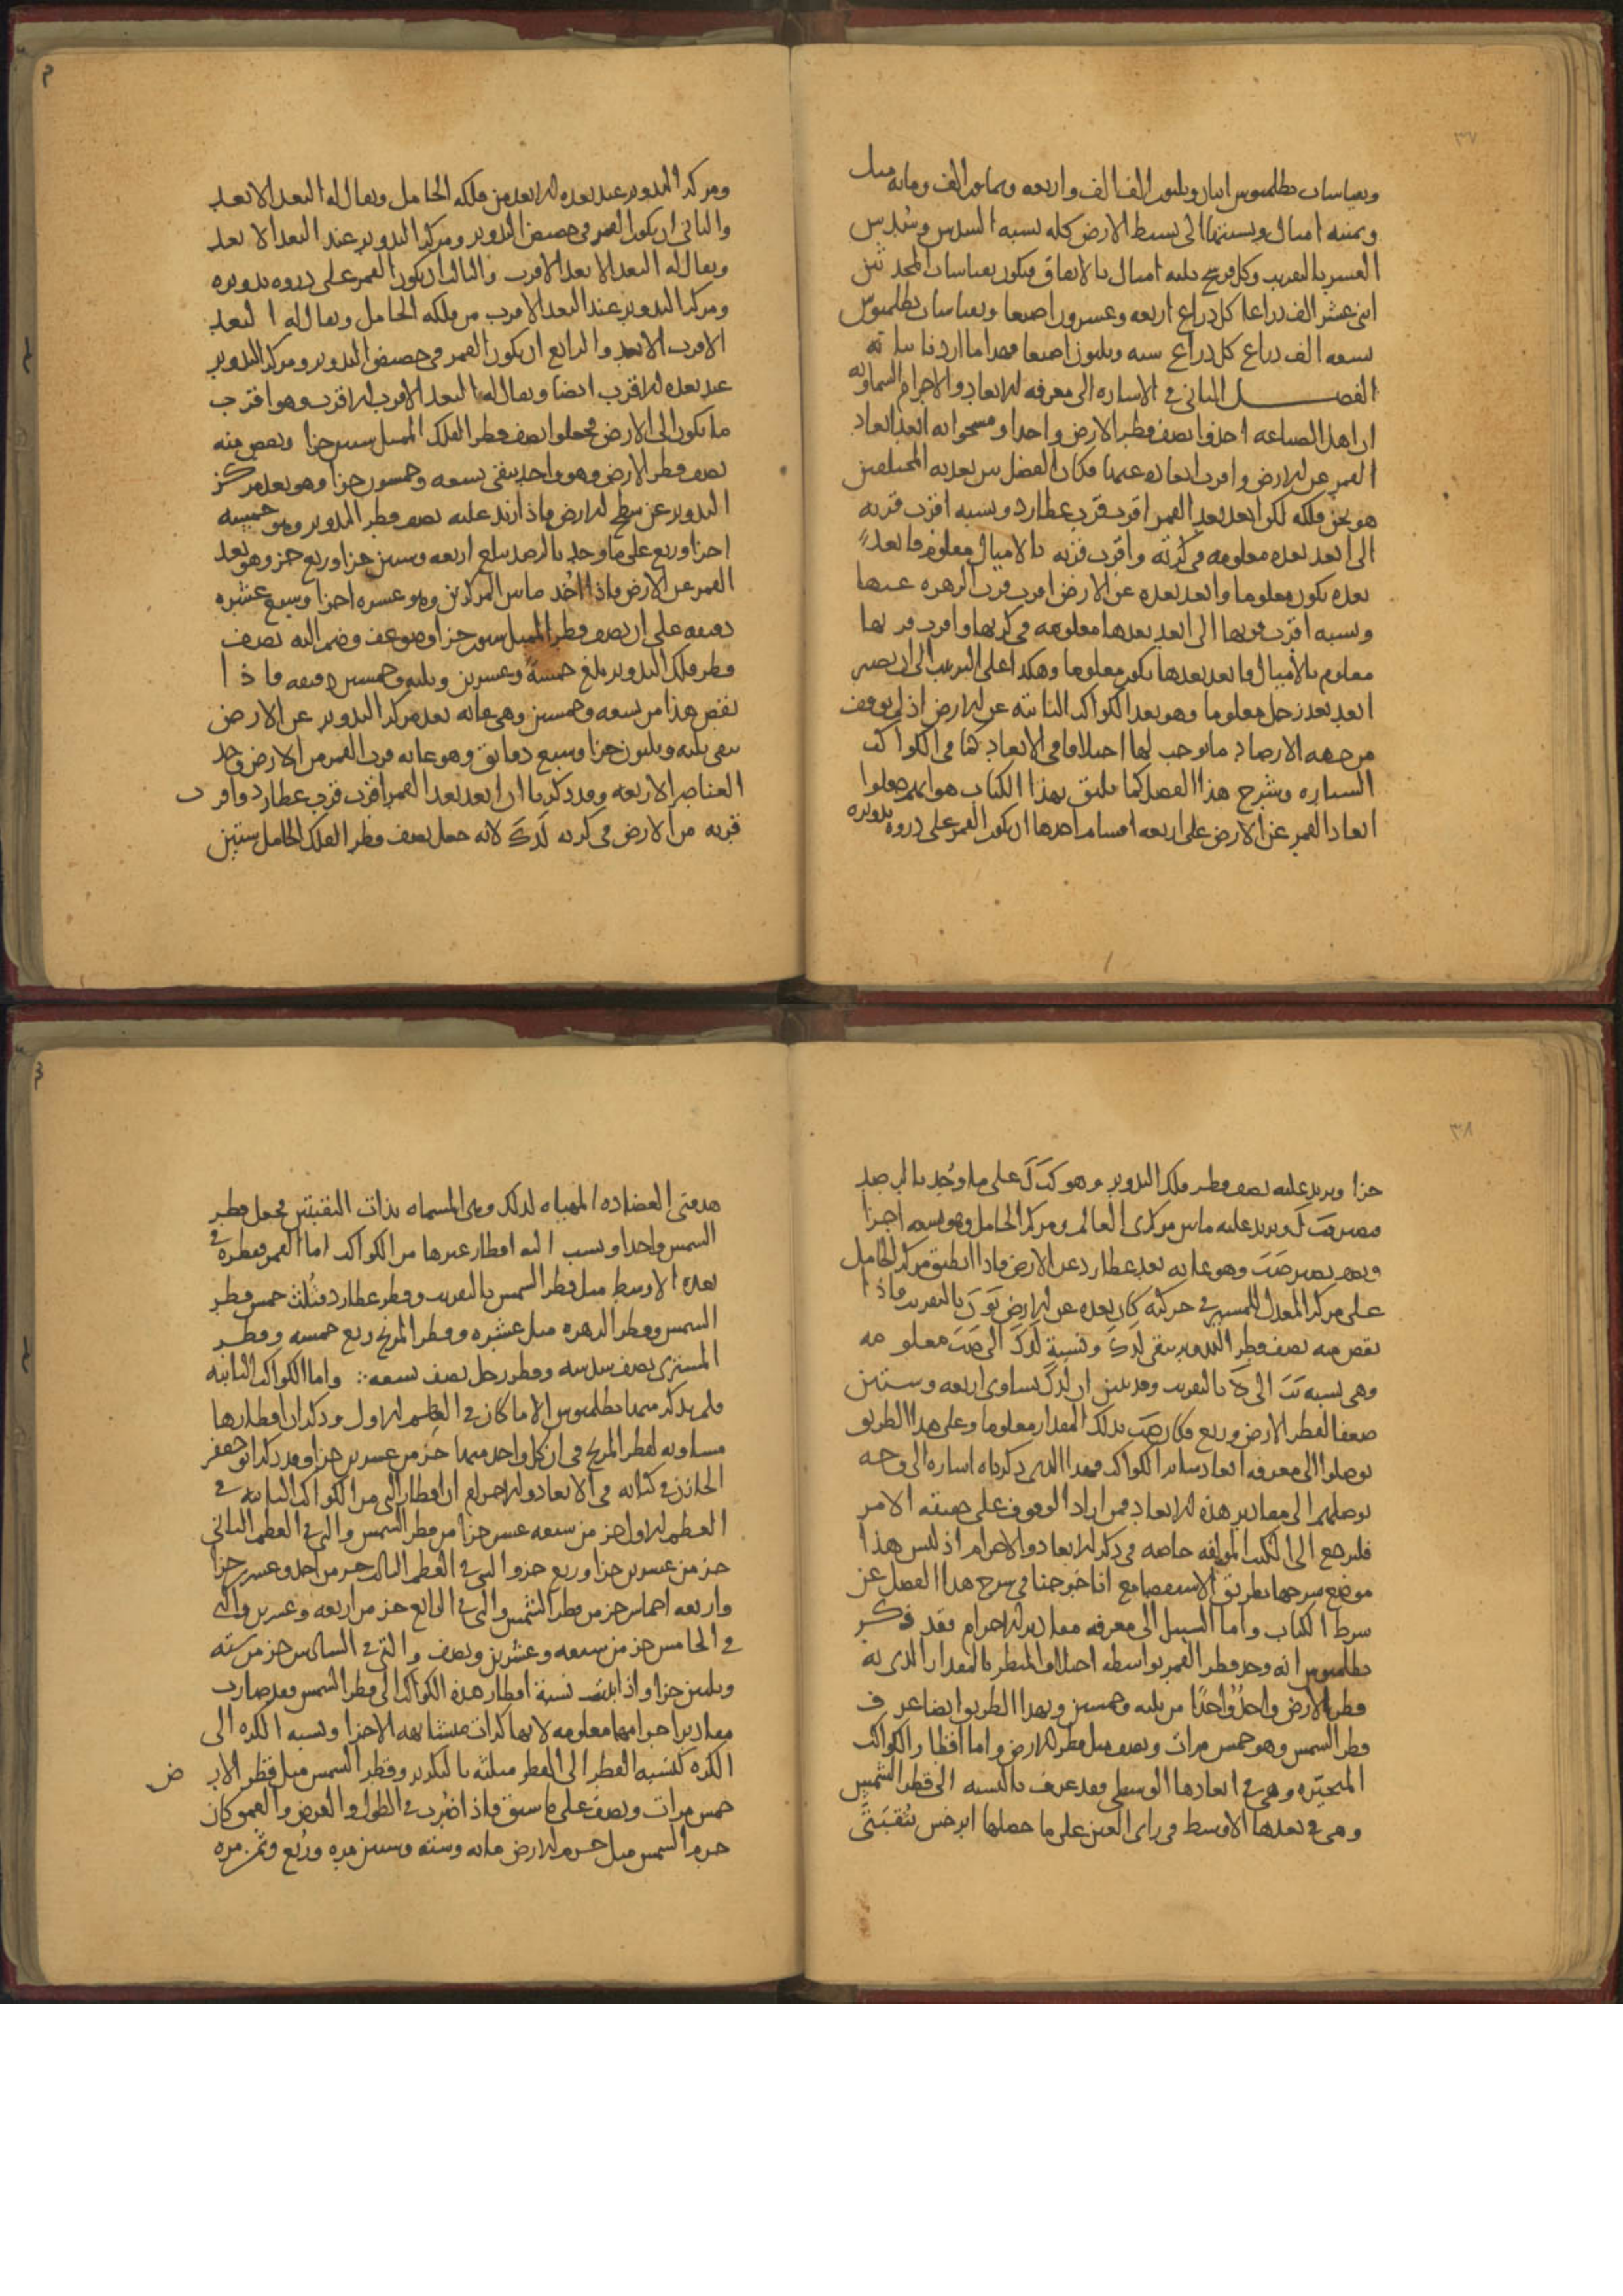 ٣٧
وبقياسات بطلميوس اثنان وثلثون الف الف واربعه وثمانون الف ومايه ميل
وثمنيه اميال ونسبتها الى بسيط الارض كله نسبه السدس وسُدس
العشر بالتقريب وكل فرسخ ثلثه اميال بالاتفاق فيكون بقياسات المحدثين
اثنى عشر الف ذراعا كل ذراع اربعه وعشرون اصبعا وبقياسات بطلميوس
تسعه الف ذراع كل ذراع سته وثلثون اصبعا فهذا ما اردنا بيانه
الفصل الثانى فى الاشاره الى معرفه الابعاد والاجرام السماويه
ان اهل الصناعه اخذوا نصف قطر الارض واحدا ومسحوا به ابعد ابعاد
القمر عن الارض واقرب ابعاده عنها فكان الفضل بين بعديه المختلفين
هو ثخن فلكه لكن ابعد بعد القمر اقرب قرب عطارد ونسبه اقرب قربه
الى ابعد بعده معلومه فى كرته واقرب قربه بالاميال معلوم فابعد
بعده يكون معلوما وابعد بعده عن الارض اقرب قرب الزهره عنها
ونسبه اقرب قربها الى ابعد بعدها معلومه فى كرتها واقرب قربها
معلوم بالاميال فابعد بعدها يكون معلوما وهكذا على الترتيب الى ان يصير
ابعد بعد زحل معلوما وهو بعد الكواكب الثابته عن الارض اذ لم يوقف
من جهه الارصاد ما يوجب لها اختلافا فى الابعاد كما فى الكواكب
السياره وشرح هذا الفصل كما يليق بهذا الكتاب هو انهم جعلوا
ابعاد القمر عن الارض على اربعه اقسام احدها ان يكون القمر على ذروه تدويره
ومركز التدوير عند بعده الابعد من فلكه الحامل ويقال له البعد الابعد
والثانى ان يكون القمر فى حضيض التدوير ومركز التدوير عند البعد الابعد
ويقال له البعد الابعد الاقرب والثالث ان يكون القمر على ذروه تدويره
ومركز التدوير عند البعد الاقرب من فلكه الحامل ويقال له البعد
الاقرب الابعد والرابع ان يكون القمر فى حضيض التدوير ومركز التدوير
عند بعده الاقرب ايضا ويقال له البعد الاقرب الاقرب وهو اقرب
ما يكون الى الارض فجعلوا نصف قطر الفلك الممثل ستين جزا ونقص منه
نصف قطر الارض وهو واحد يبقى تسعه وخمسون جزا وهو بعد مركز
التدوير عن سطح الارض فاذا زيد عليه نصف قطر التدوير وهو خمسه
اجزا وربع على ما وجد بالرصد يبلغ اربعه وستين جزا وربع جز وهو بعد
القمر عن الارض فاذا اخُذ ما بين المركزين وهو عشره اجزا وسبع عشره
دقيقه على ان نصف قطر الممثل ستون جزا وضوعف وضم اليه نصف
قطر فلك التدوير بلغ خمسةً وعشرين وثلثه وخمسين دقيقه فاذا
نقص هذا من تسعه وخمسين وهى غايه بعد مركز التدوير عن الارض
يبقى ثلثه وثلثون جزا وسبع دقايق وهو غايه قرب القمر من الارض وحد
العناصر الاربعه وقد ذكرنا ان ابعد بعد القمر اقرب قرب عطارد واقرب
قربه من الارض فى كرته لَدكَ لانه جعل نصف قطر الفلك الحامل ستين
٣٨
جزا ويزيد عليه نصف قطر فلك التدوير وهو كَبَ لَ على ما وُجد بالرصد
فيصير فَبَ لَ ويزيد عليه ما بين مركزى العالم ومركز الحامل وهو تسعه اجزا
ونصف يصير صَبَ وهو غايه بعد عطارد عن الارض فاذا انطبق مركز الحامل
على مركز المعدل للمسير فى حركته كان بعده عن الارض نَوَ نَ بالتقريب فاذا
نقص منه نصف قطر التدوير يبقى لَدكَ ونسبةِ لَدكَ الى صَبَ معلومه
وهى نسبه الى بالتقريب وقد تبين ان لَدكَ تساوى اربعه وستين
ضعفا لقطر الارض وربع فكان صَبَ بذلك المقدار معلوما وعلى هذا الطريق
توصلوا الى معرفه ابعاد ساير الكواكب فهذا الذى ذكرناه اشاره الى وجه
توصلهم الى مقادير هذه الابعاد فمن اراد الوقوف على حقيقه الامر
فليرجع الى الكتب المولفه خاصه فى ذكر الابعاد والاجرام اذ ليس هذا
موضع شرحها بطريق الاستقصا مع انا خرجنا فى شرح هذا الفصل عن
شرط الكتاب واما السبيل الى معرفه مقادير الاجرام فقد ذكر
بطلميوس انه وجد قطر القمر بواسطه اختلاف المنظر بالمقدار الذى به
قطر الارض واحدٌ واحدًا من ثلثه وخمسين وبهذا الطريق ايضا عرف
قطر الشمس وهو خمس مرات ونصف مثل قطر الارض واما اقطار الكواكب
المتحيّره وهى فى ابعادها الوسطى فقد عرف بالنسبه الى قطر الشمس
وهى فى بعدها الاوسط فى راى العين على ما حصلها ابرخس بثقبتَى
هدفتى العضاده المهياه لذلك وهى المسماه بذات الثقبتين فجعل قطر
الشمس واحدا ونسب اليه اقطار غيرها من الكواكب اما القمر فقطره فى
بعده الاوسط مثل قطر الشمس بالتقريب وقطر عطارد ثُلث خمس قطر
الشمس وقطر الزهره مثل عشره وقطر المريخ ربع خمسه وقطر
المشترى نصف سدسه وقطر زحل نصف تسعه ∴ واما الكواكب الثابته
فلم يذكر منها بطلميوس الا ما كان فى العِظم الاول وذكر ان اقطارها
مساويه لقطر المريخ فى ان كل واحد منها جز من عشرين جزا وقد ذكر ابو جعفر
الخازن فى كتابه فى الابعاد والاجرام ان اقطار التى من الكواكب الثابته فى
العظم الاول جز من سبعه عشر جزا من قطر الشمس والتى فى العظم الثانى
جز من عشرين جزا وربع جز والتى فى العظم الثالث جز من احد وعشرين جزا
واربعه اخماس جز من قطر الشمس والتى فى الرابع جز من اربعه وعشرين والتى
فى الخامس جز من سبعه وعشرين ونصف والتى فى السادس جز من سته
وثلثين جزا واذا ثبتت نسبة اقطار هذه الكواكب الى قطر الشمس فقد صارت
مقادير اجرامها معلومه لانها كرات متشابهه الاجزا ونسبه الكره الى
الكره كنسبه القطر الى القطر مثلثه بالتكرير وقطر الشمس مثل قطر الارض
خمس مرات ونصف على ما سبق فاذا ضُرب فى الطول والعرض والعمق كان
جرم الشمس مثل جرم الارض مايه وسته وستين مره ورُبع وثمن مره